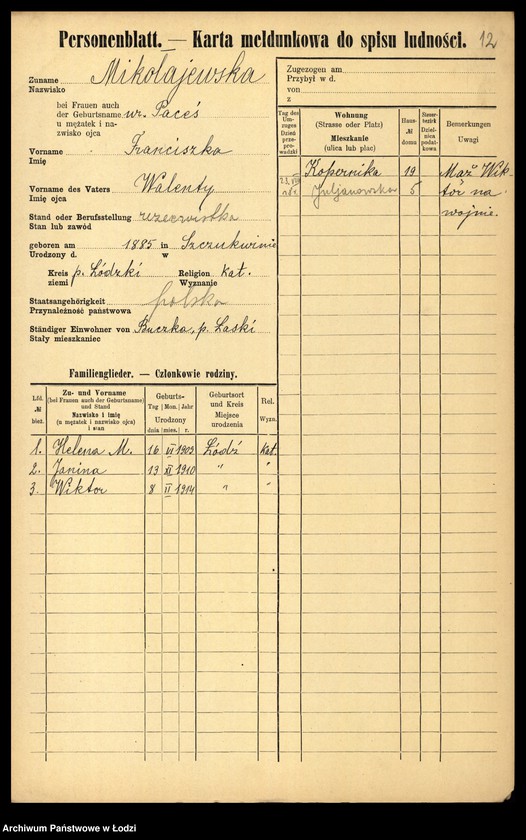 Personenblatt. — Karta meldunkowa do spisu ludności. 12
Zuname
Nazwisko
Mikołajewska
bei Frauen auch
der Geburtsname
u mężatek i na-
zwisko ojca
ur. Paceś
Vorname
Imię
Franciszka
Vorname des Vaters
Imię ojca
Walenty
Stand oder Berufsstellung
Stan lub zawód
rezerwistka
geboren am 1885 in Szczukwinie
Urodzony d. w
Kreis p. Łódzki Religion Kat.
ziemi Wyznanie
Staatsangehörigkeit
Przynależność państwowa
polska
Ständiger Einwohner von Buczka, p. Łaski
Stały mieszkaniec
Familienglieder. — Członkowie rodziny.
Lfd. № bież.
Zu- und Vorname
(bei Frauen auch der Geburtsname)
und Stand
Nazwisko i imię
(u mężatek i nazwisko ojca)
i stan
Geburts-
Tag Mon. Jahr
Urodzony
dnia mies. r.
Geburtsort
und Kreis
Miejsce
urodzenia
Rel.
Wyzn.
1. Helena M. 16 VI 1909 Łódź Kat.
2. Janina 13 XI 1910 " "
3. Wiktor 8 II 1914 " "
Zugezogen am
Przybył w d.
von
z
Tag des
Um-
zuges
Dzień
prze-
prowadzki
Wohnung
(Strasse oder Platz)
Mieszkanie
(ulica lub plac)
Haus-
№
domu
Steuer-
bezirk
Dziel-
nica
podat-
kowa
Bemerkungen
Uwagi
Kopernika 19 Mąż Wik-
Juljanowska 5 tór na
wojnie.
Archiwum Państwowe w Łodzi